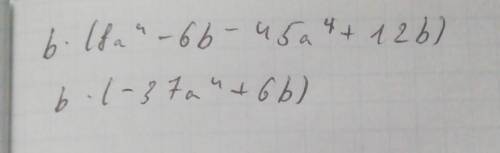 b · (8a⁴ - 6b - 45a⁴ + 12b)
b · (-37a⁴ + 6b)